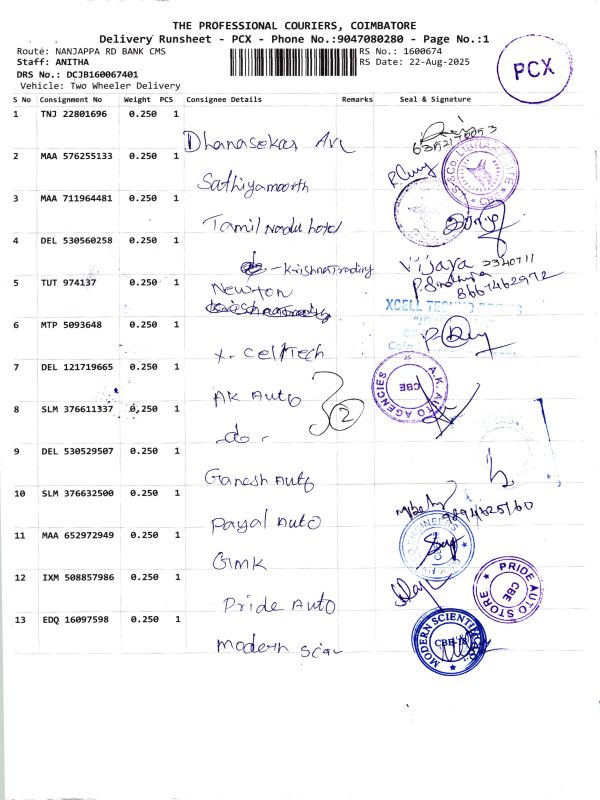 THE PROFESSIONAL COURIERS, COIMBATORE
Delivery Runsheet - PCX - Phone No.:9047080280 - Page No.:1
Route: NANJAPPA RD BANK CMS
RS No.: 1600674
Staff: ANITHA
RS Date: 22-Aug-2025
DRS No.: DCJB160067401
Vehicle: Two Wheeler Delivery
PCX
S No Consignment No Weight PCS Consignee Details Remarks Seal & Signature
1 TNJ 22801696 0.250 1
Dhanasekar
2 MAA 576255133 0.250 1
Sathiyamoorth
3 MAA 711964481 0.250 1
Tamil Nadu hotel
4 DEL 530560258 0.250 1
- Krishna Trading Vijaya
5 TUT 974137 0.250 1
Newton
8667462972
XCELL
6 MTP 5093648 0.250 1
X-Cell Tech
7 DEL 121719665 0.250 1
AK Auto
A.K. AUTO AGENCIES CBE
2
8 SLM 376611337 0,250 1
-do-
9 DEL 530529507 0.250 1
Ganesh Auto
10 SLM 376632500 0.250 1
Payal Auto
11 MAA 652972949 0.250 1
GMK
12 IXM 508857986 0.250 1
Pride Auto
PRIDE AUTO STORE CBE
13 EDQ 16097598 0.250 1
Modern Scien
MODERN SCIENTIFIC